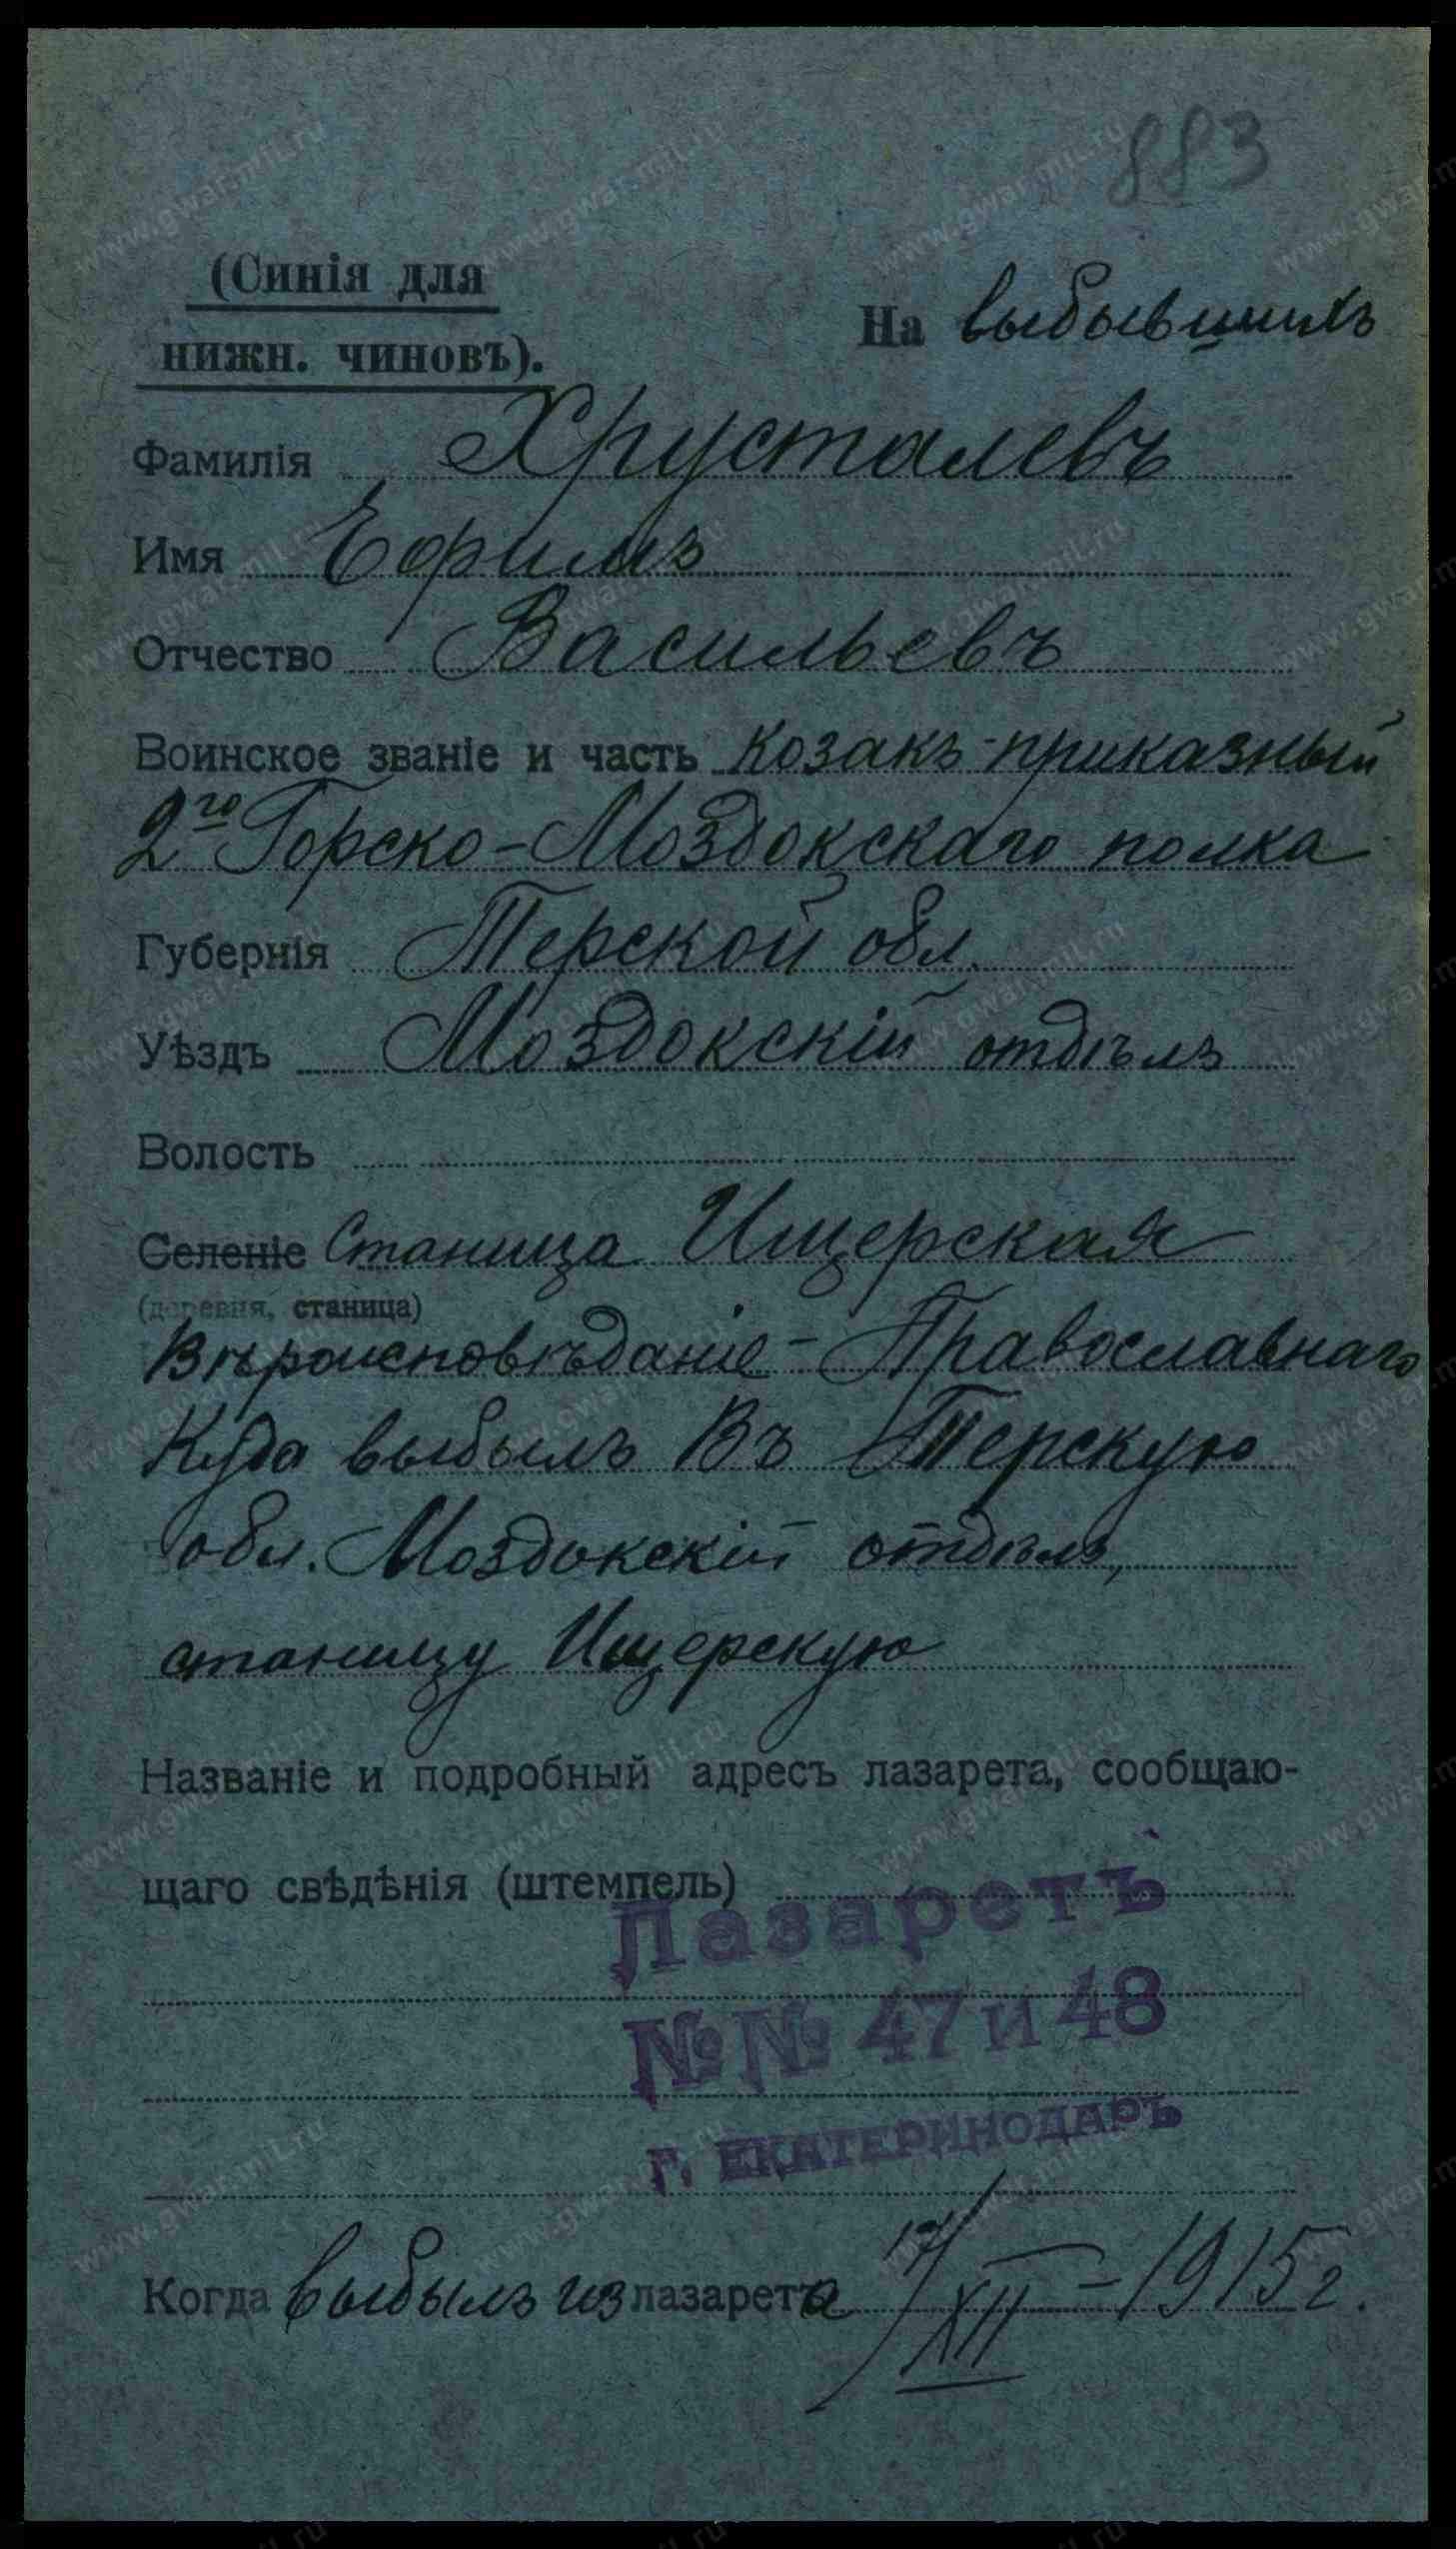 883
(Синія для
нижн. чиновъ).
На выбывшихъ
Фамилія Хрусталевъ
Имя Ефимъ
Отчество Васильевъ
Воинское званіе и часть Козакъ-приказный
2го Горско-Моздокскаго полка
Губернія Терской обл.
Уѣздъ Моздокскій отдѣлъ
Волость
Селеніе Станица Ищерская
(деревня, станица)
Вѣроисповѣданіе - Православнаго
Куда выбылъ Въ Терскую
обл. Моздокскій отдѣлъ,
станицу Ищерскую
Названіе и подробный адресъ лазарета, сообщаю-
щаго свѣдѣнія (штемпель)
Лазаретъ
№№ 47 и 48
г. ЕКАТЕРИНОДАРЪ
Когда выбылъ из лазарета 17/XII - 1915 г.
www.gwar.mil.ru